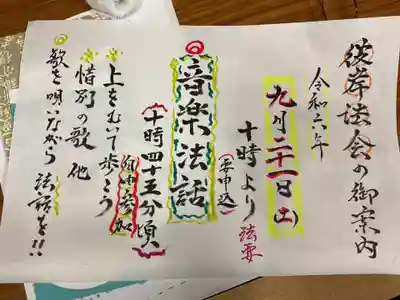 彼岸法会の御案内
令和六年
九月二十一日(土)
十時より法要
(要申込)
音楽法話
十時四十五分頃
自由参加
上をむいて歩こう
惜別の歌 他
歌を唄いながら法話を!!